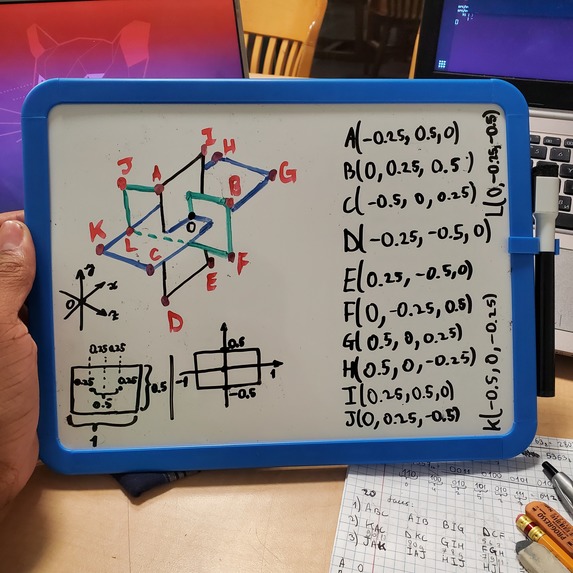 I
H
J
A
G
B
O
K
L
C
F
E
D
y
x
O
z
0.25 0.25
0.25
0.25
0.5
0.5
1
0.5
-1
1
-0.5
A(-0.25, 0.5, 0)
B(0, 0.25, 0.5)
C(-0.5, 0, 0.25)
D(-0.25, -0.5, 0)
E(0.25, -0.5, 0)
F(0, -0.25, 0.5)
G(0.5, 0, 0.25)
H(0.5, 0, -0.25)
I(0.25, 0.5, 0)
J(0, 0.25, -0.5)
L(0, -0.25, -0.5)
K(-0.5, 0, -0.25)
20 faces:
1) ABC AIB BIG DCF
2) KAC DKC GIH FGH
3) JAK IAJ HIJ HJ
A O